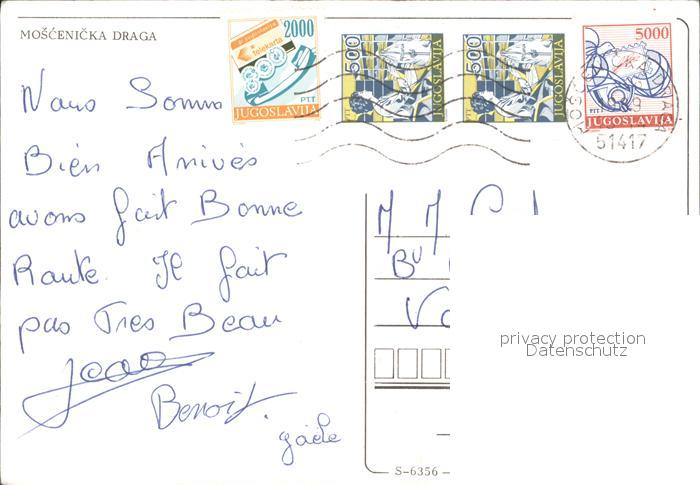 MOŠĆENIČKA DRAGA
telekarta
2000
PTT
JUGOSLAVIJA
500
JUGOSLAVIJA
500
JUGOSLAVIJA
5000
PTT
JUGOSLAVIJA
51417
Nous Somm
Bien Arrivés
avons fait Bonne
Route. Il fait
pas Tres Beau
Benoit.
gaële
M M
Bu
privacy protection
Datenschutz
S-6356